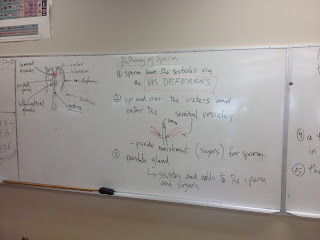 seminal
vesicles
ureter
bladder
vas deferens
prostate
gland
Pathway of Sperm
① sperm leave the testicles via
the VAS DEFERENS
② up and over the ureters and
enter the seminal vesicles
- provide nourishment (sugars) for sperm
③ prostate gland
↳ secretes and adds to the sperm
and sugars
④ a
in
⑤ the